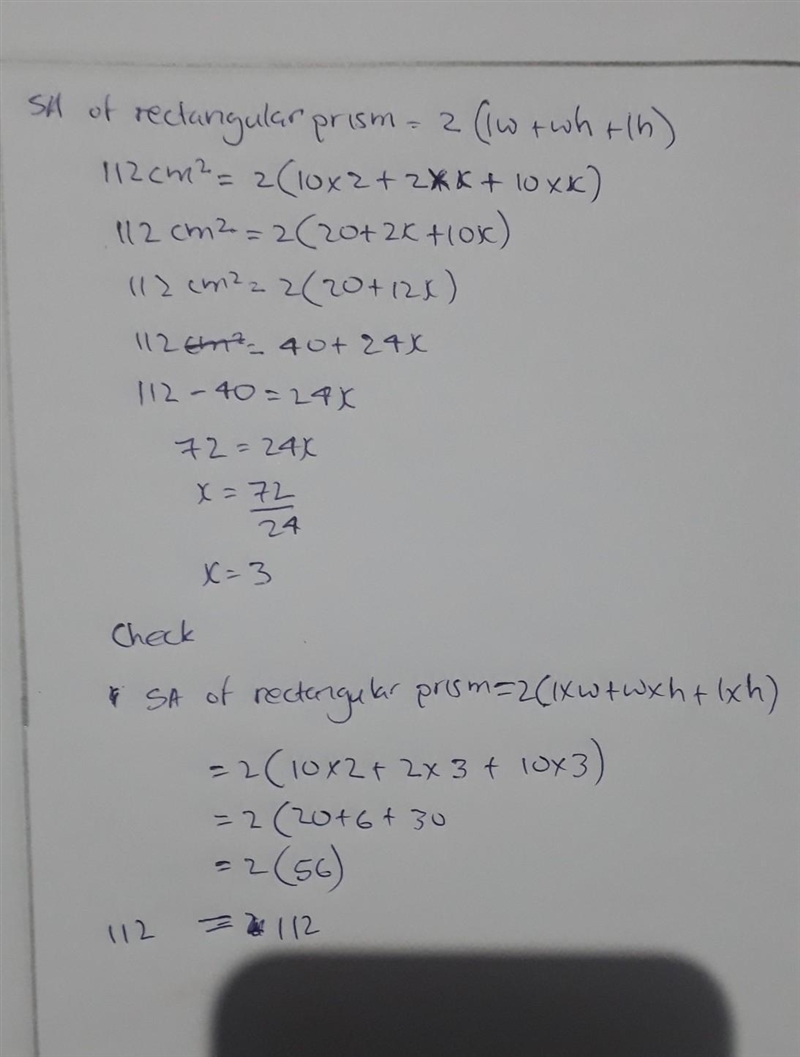 SA of rectangular prism = 2 (lw + wh + lh)
112 cm² = 2(10×2 + 2×x + 10×x)
112 cm² = 2(20+2x+10x)
112 cm² = 2(20+12x)
112 cm² = 40+24x
112 - 40 = 24x
72 = 24x
x = 72/24
x = 3
Check
SA of rectangular prism = 2(l×w+w×h+l×h)
= 2(10×2 + 2×3 + 10×3)
= 2(20+6+30
= 2(56)
112 = 112